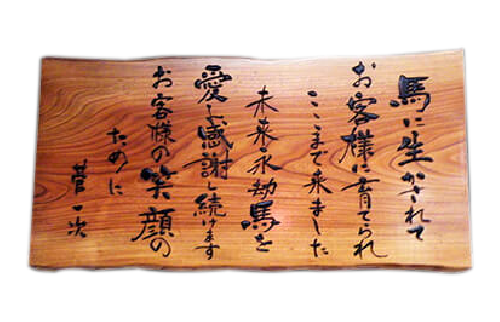 馬に生かされて
お客様に育てられ
ここまで来ました
未来永劫馬を
愛し感謝し続けます
お客様の笑顔の
ために
菅一次